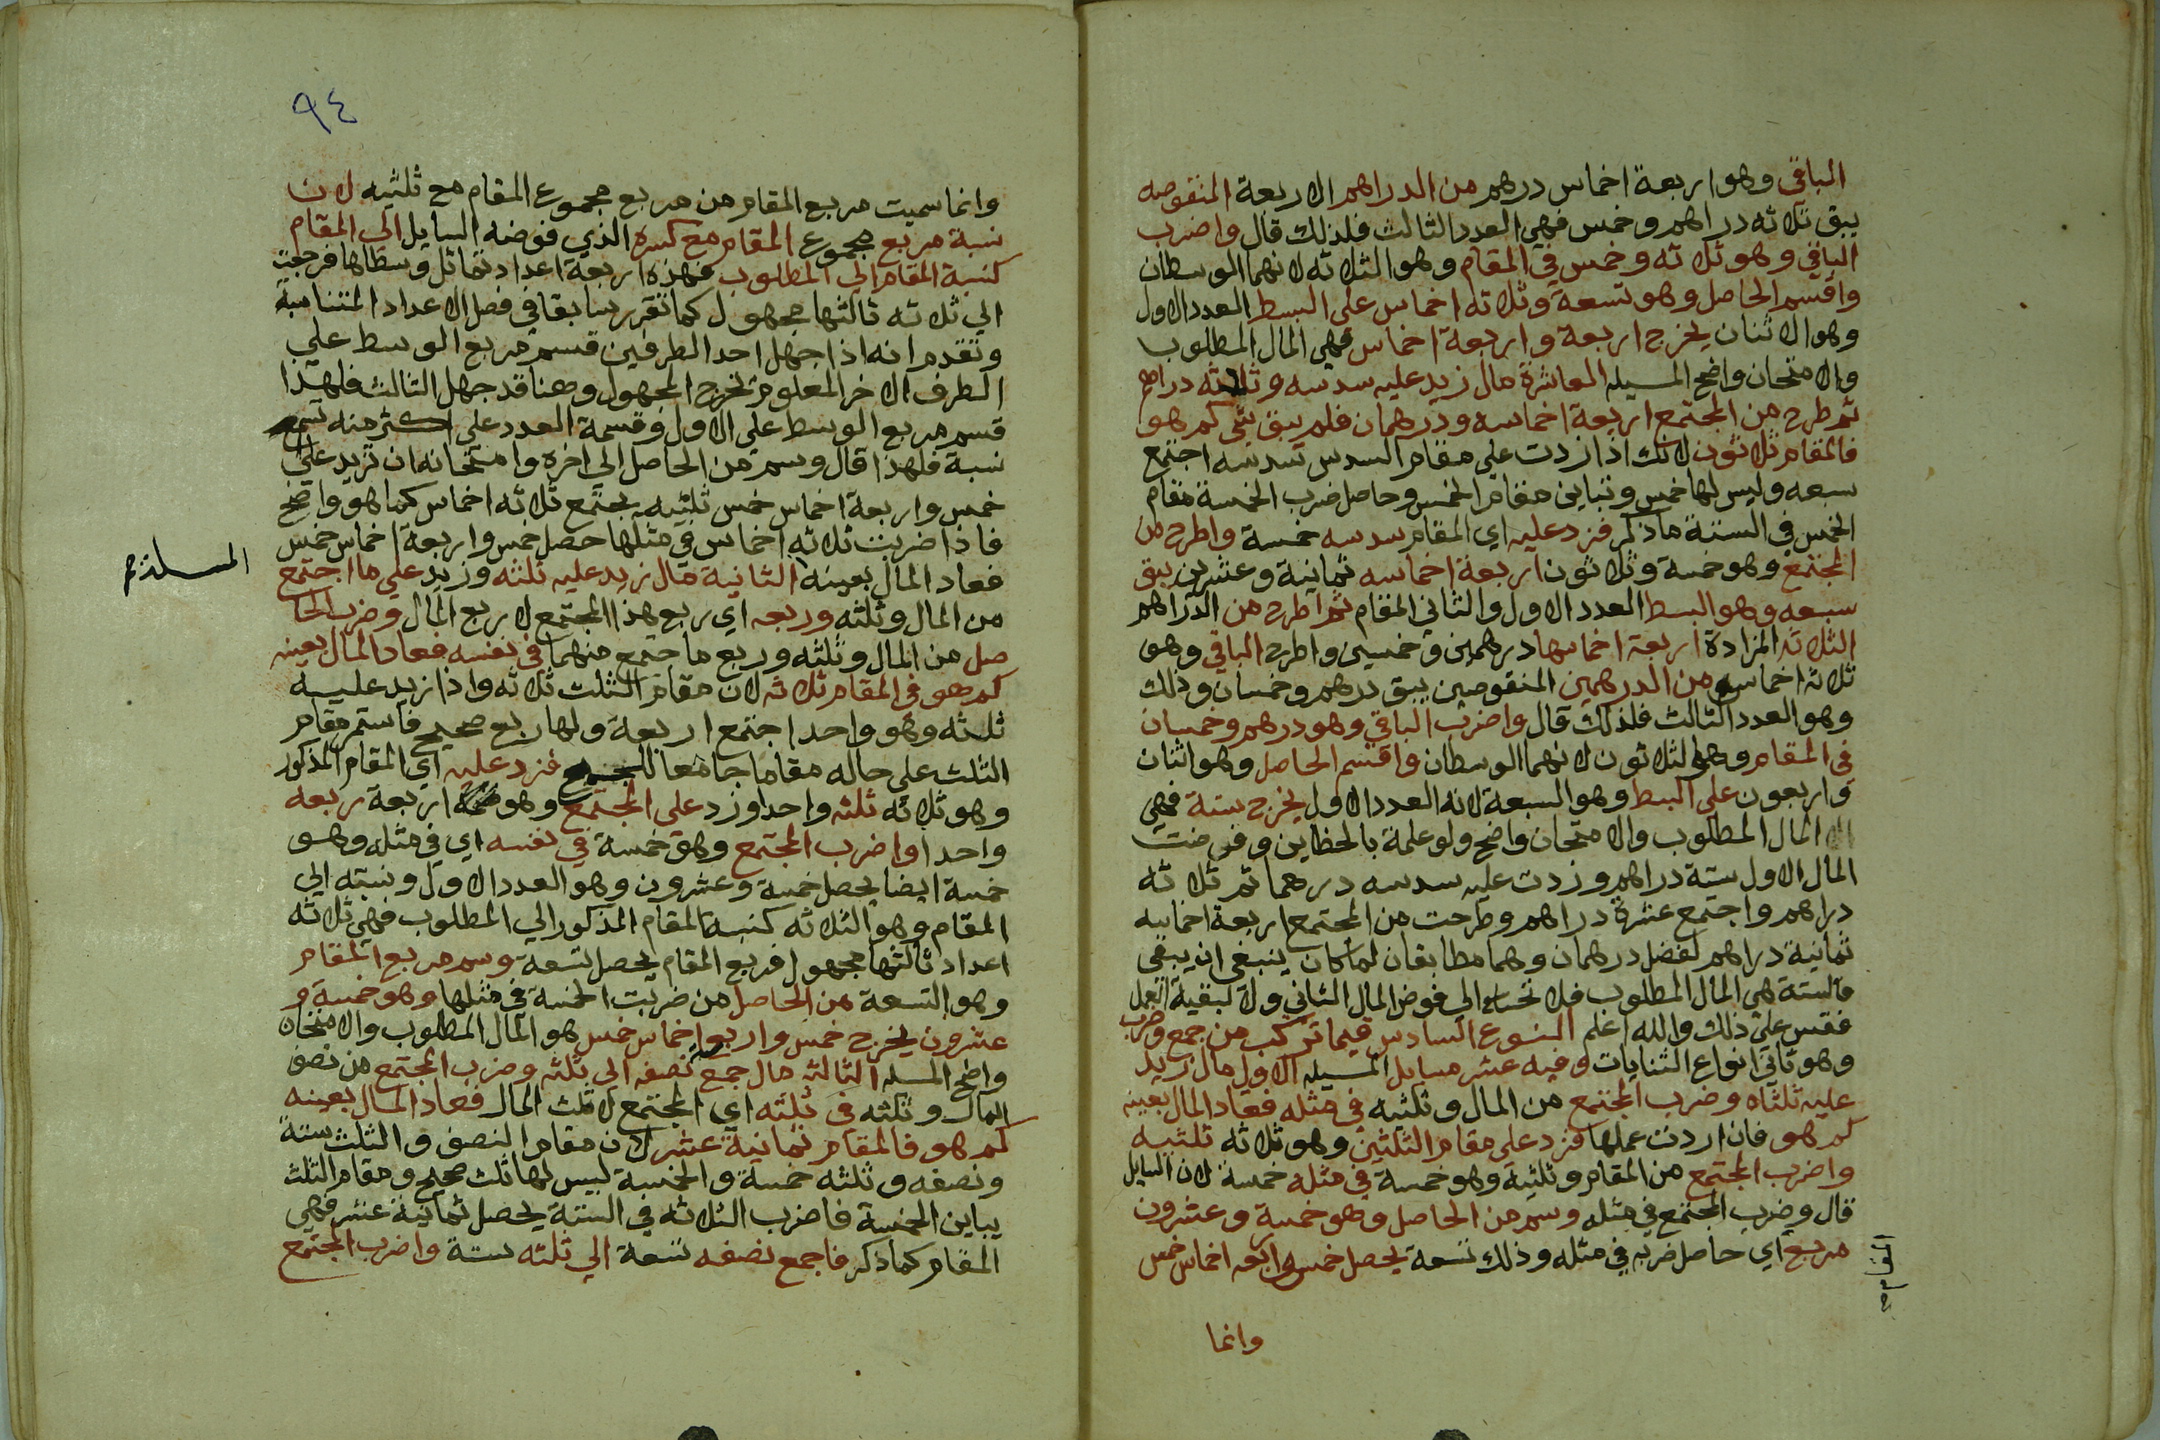 الباقي وهو اربعة اخماس درهم من الدراهم الاربعة المنقوصه
يبق ثلاثه دراهم وخمس فهي العدد الثالث فلذلك قال واضرب
الباقي وهو ثلاثه وخمس في المقام وهو الثلاثه لانهما الوسطان
واقسم الحاصل وهو تسعة وثلاثه اخماس على البسط العدد الاول
وهو الاثنان يخرج اربعة واربعة اخماس فهي المال المطلوب
والامتحان واضح المسيله العاشرة مال زيد عليه سدسه وثلاثه دراهم
ثم طرح من المجتمع اربعة اخماسه ودرهمان فلم يبق شى كم هو
فالمقام ثلاثون لانك اذا زدت على مقام السدس سدسه اجتمع
سبعه وليس لها خمس وتباين مقام الخمس وحاصل ضرب الخمسة مقام
الخمس في الستة ماذكر فزد عليه اي المقام سدسه خمسة واطرح من
المجتمع وهو خمسة وثلاثون اربعة اخماسه ثمانية وعشرين يبق
سبعه وهو البسط العدد الاول والثاني المقام ثم اطرح من الدراهم
الثلاثه المزادة اربعة اخماسها درهمين وخمسين واطرح الباقي وهو
ثلاثه اخماس من الدرهمين المنقوصين يبق درهم وخمسان وذلك
وهو العدد الثالث فلذلك قال واضرب الباقي وهو درهم وخمسان
في المقام وهو الثلاثون لانهما الوسطان واقسم الحاصل وهو اثنان
واربعون على البسط وهو السبعة لانه العدد الاول يخرج ستة فهي
المال المطلوب والامتحان واضح ولو عملته بالخطاين وفرضت
المال الاول ستة دراهم وزدت عليه سدسه درهما ثم ثلاثه
دراهم واجتمع عشرة دراهم وطرحت من المجتمع اربعة اخماسه
ثمانية دراهم لفضل درهمان وهما مطابقان لما كان ينبغي ان يبقى
فالستة هي المال المطلوب فلا تحتاج الي فوض المال الثاني ولا لبقية العمل
فقس علي ذلك والله اعلم النوع السادس فيما تركب من جمع وضرب
وهو ثاني انواع الثنايات وفيه عشر مسايل المسيله الاولى مال زيد
عليه ثلثاه وضرب المجتمع من المال وثلثيه في مثله فعاد المال بعينه
كم هو فان اردت عملها فزد على مقام الثلثين وهو ثلاثه ثلثيه
واضرب المجتمع من المقام وثلثيه وهو خمسة في مثله خمسة لان السايل
قال وضرب المجتمع في مثله وسم من الحاصل وهو خمسة وعشرون
مربع اي حاصل ضربه في مثله وذلك تسعة يحصل خمس واربعه اخماس خمس
المقام صح
وانما
٩٤
وانما سميت مربع المقام من مربع مجموع المقام مع ثلثيه لان
نسبة مربع مجموع المقام مع كسره الذي فوضه السايل الى المقام
كنسبة المقام الي المطلوب فهذه اربعة اعداد تماثل وسطاها فرجعت
الي ثلاثه ثالثها مجهول كما تقرر سابقا في فصل الاعداد المتناسبة
وتقدم انه اذا جهل احد الطرفين قسم مربع الوسط علي
الطرف الاخر المعلوم يخرج المجهول وهنا قد جهل الثالث فلهذا
قسم مربع الوسط على الاول وقسمة العدد على اكثر منه تسمى
نسبة فلهذا قال وسم من الحاصل الى اخره وامتحانه ان تزيد على
خمس واربعة اخماس خمس ثلثيه يجتمع ثلاثه اخماس كما هو واضح
فاذا ضربت ثلاثه اخماس في مثلها حصل خمس واربعة اخماس خمس
فعاد المال بعينه الثانية مال زيد عليه ثلثه وزيد علي ما اجتمع
المسيلة صح
من المال وثلثه وربعه اي ربع هذا المجتمع لا ربع المال وضرب الحا
صل من المال وثلثه وربع ما اجتمع منهما في نفسه فعاد المال بعينه
كم هو في المقام ثلاثه لان مقام الثلث ثلاثه واذا زيد عليه
ثلثه وهو واحد اجتمع اربعة ولها ربع صحيح فاستمر مقام
الثلث على حاله مقاما جامعا فزد عليه اي المقام المذكور
وهو ثلاثه ثلثه واحدا وزد على المجتمع وهو اربعة ربعه
واحدا واضرب المجتمع وهو خمسة في نفسه اي في مثله وهو
خمسة ايضا يحصل خمسة وعشرون وهو العدد الاول ونسبته الي
المقام وهو الثلاثه كنسبة المقام المذكور الي المطلوب فهي ثلاثه
اعداد ثالثها مجهول فربع المقام يحصل تسعة وسم مربع المقام
وهو التسعة من الحاصل من ضربت الخمسة في مثلها وهو خمسة و
عشرون يخرج خمس واربع اخماس خمس هو المال المطلوب والامتحان
واضح المسله الثالثه مال جمع نصفه الى ثلثه وضرب المجتمع من نصف
المال وثلثه في ثلثه اي المجتمع لا ثلث المال فعاد المال بعينه
كم هو فالمقام ثمانية عشر لان مقام النصف والثلث ستة
ونصفه وثلثه خمسة والخمسة ليس لها ثلث صحيح ومقام الثلث
يباين الخمسة فاضرب الثلاثه في الستة يحصل ثمانية عشر فهي
المقام كما ذكر فاجمع نصفه تسعة الي ثلثه ستة واضرب المجتمع